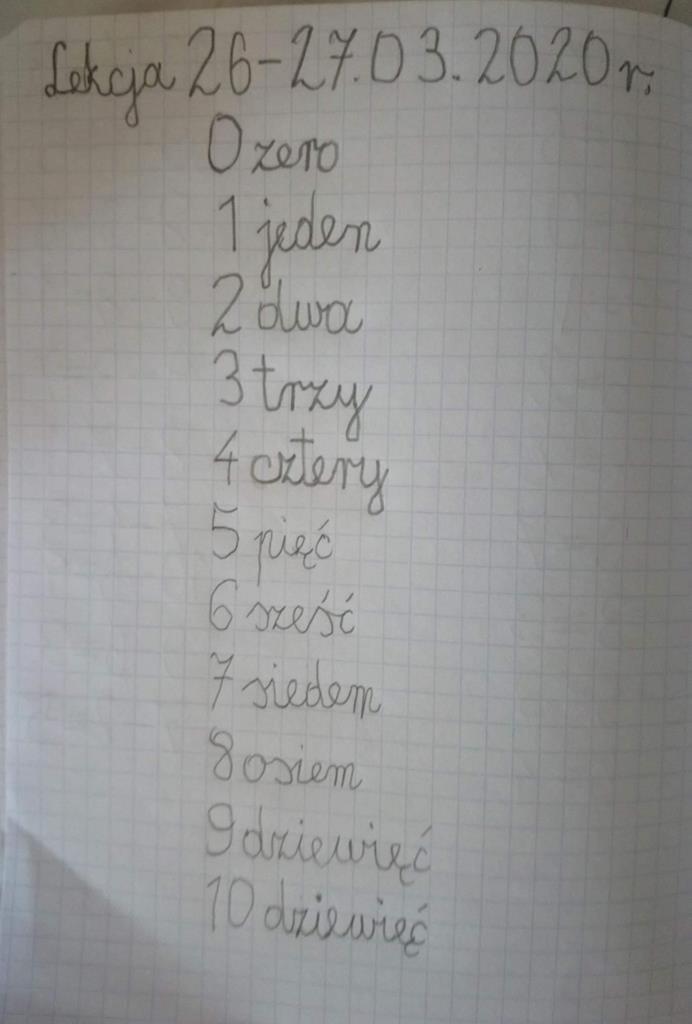 Lekcja 26-27.03.2020 r.
0 zero
1 jeden
2 dwa
3 trzy
4 cztery
5 pięć
6 sześć
7 siedem
8 osiem
9 dziewięć
10 dziewięć